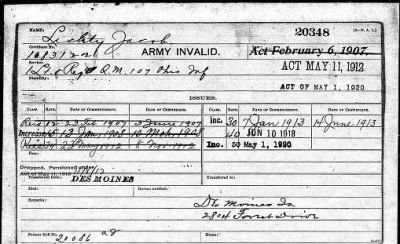 20348
Lichty Jacob
Name.
Certificate No.
1083122
ARMY INVALID.
Act February 6, 1907.
ACT MAY 11, 1912
Service.
107 Ohio Inf
ACT OF MAY 1, 1920
ISSUES.
CLASS. RATE. DATE OF COMMENCEMENT. DATE OF CERTIFICATE. CLASS. RATE. DATE OF COMMENCEMENT. DATE OF CERTIFICATE.
Reis 12 23 Feb 1907 3 June 1907 Inc. 30 7 Jan 1913 4 June 1913
Increase 15 13 Jan 1908 10 Mch 1908 40 JUN 10 1918
Reis 23 May 1912 8 Nov 1912 Inc. 50 May 1, 1920
Dropped. Pensioned under
Act of May 11, 1912
Transferred from DES MOINES
Des Moines Ia
2804 Forest Drive
20086